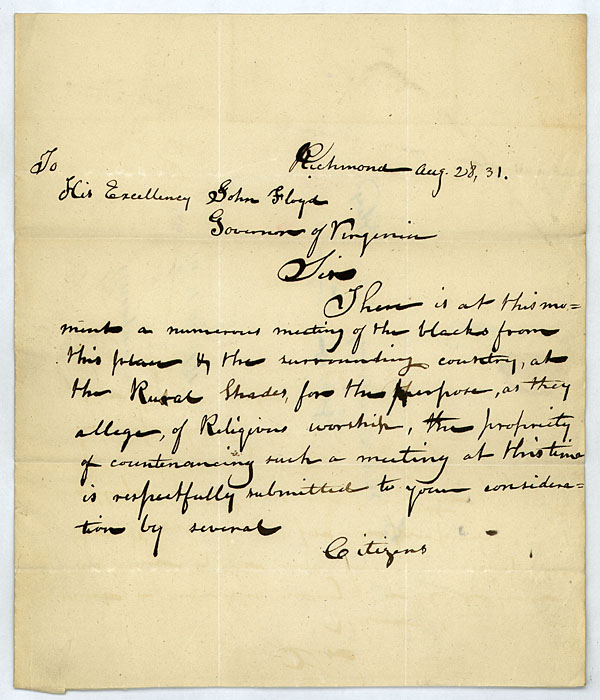 Richmond Aug. 28, 31.
To
His Excellency John Floyd
Governor of Virginia
Sir
There is at this mo=
ment a numerous meeting of the blacks from
this place & the surrounding country, at
the Rural Shades, for the purpose, as they
allege, of Religious worship, the propriety
of countenancing such a meeting at this time
is respectfully submitted to your considera=
tion by several
Citizens